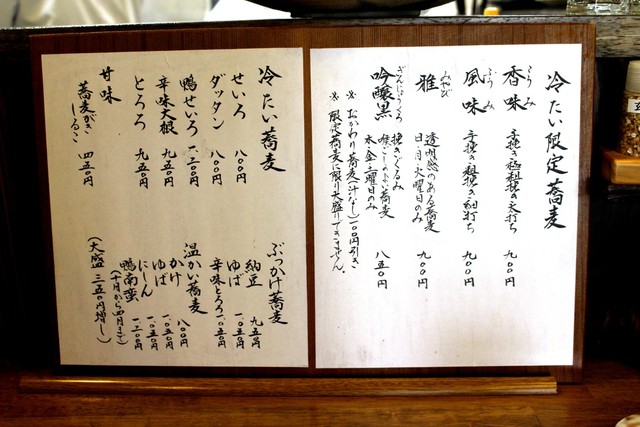 冷たい限定蕎麦
こうみ
香味 手挽き極粗挽き太打ち 九〇〇円
ふうみ
風味 手挽き粗挽き細打ち 九〇〇円
みやび
雅 透明感のある蕎麦 九〇〇円
日・月・火曜日のみ
ぎんじょうくろ
吟醸黒 挽きぐるみ 八五〇円
喉ごしのよい蕎麦
木・金・土曜日のみ
※ おかわり蕎麦(汁なし)一〇〇円引き
※ 限定蕎麦に限り大盛りできません。
冷たい蕎麦
せいろ 八〇〇円
ダッタン 八〇〇円
鴨せいろ 一、二〇〇円
辛味大根 九五〇円
とろろ 九五〇円
甘味
蕎麦がき
しるこ 四五〇円
ぶっかけ蕎麦
納豆 九五〇円
ゆば 一、〇五〇円
辛味とろろ 一、〇五〇円
温かい蕎麦
かけ 八〇〇円
ゆば 一、〇五〇円
にしん 一、〇五〇円
鴨南蛮 一、二〇〇円
(十月から四月まで)
(大盛 二五〇円増し)